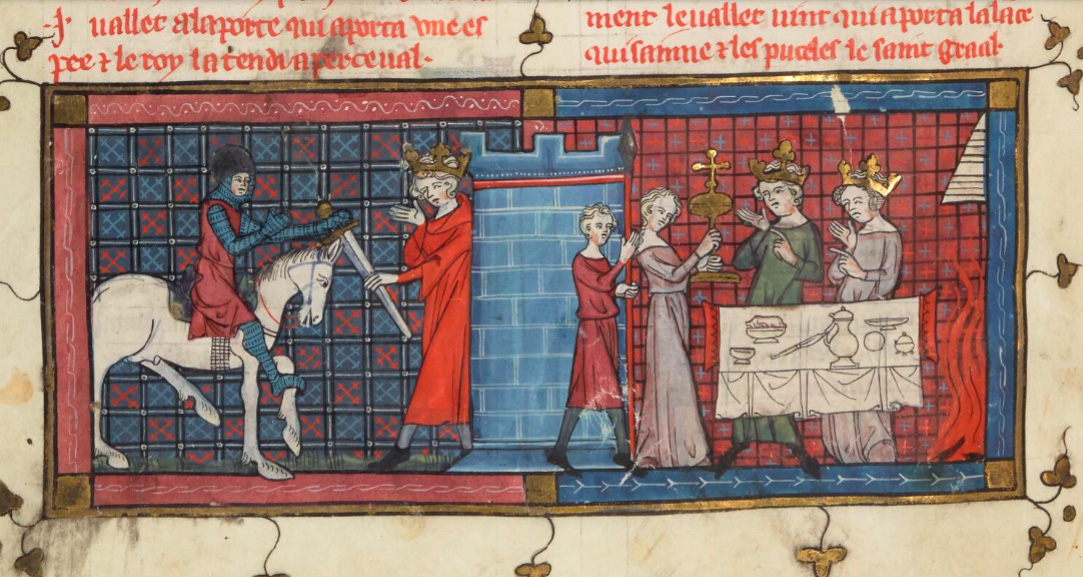 ·I· uallet alaporte qui aporta vne es
pee ⁊ le roy la tendi a perceual·
ment leuallet uint qui aporta lalāce
qui sainne ⁊ les puceles le saint Graal·